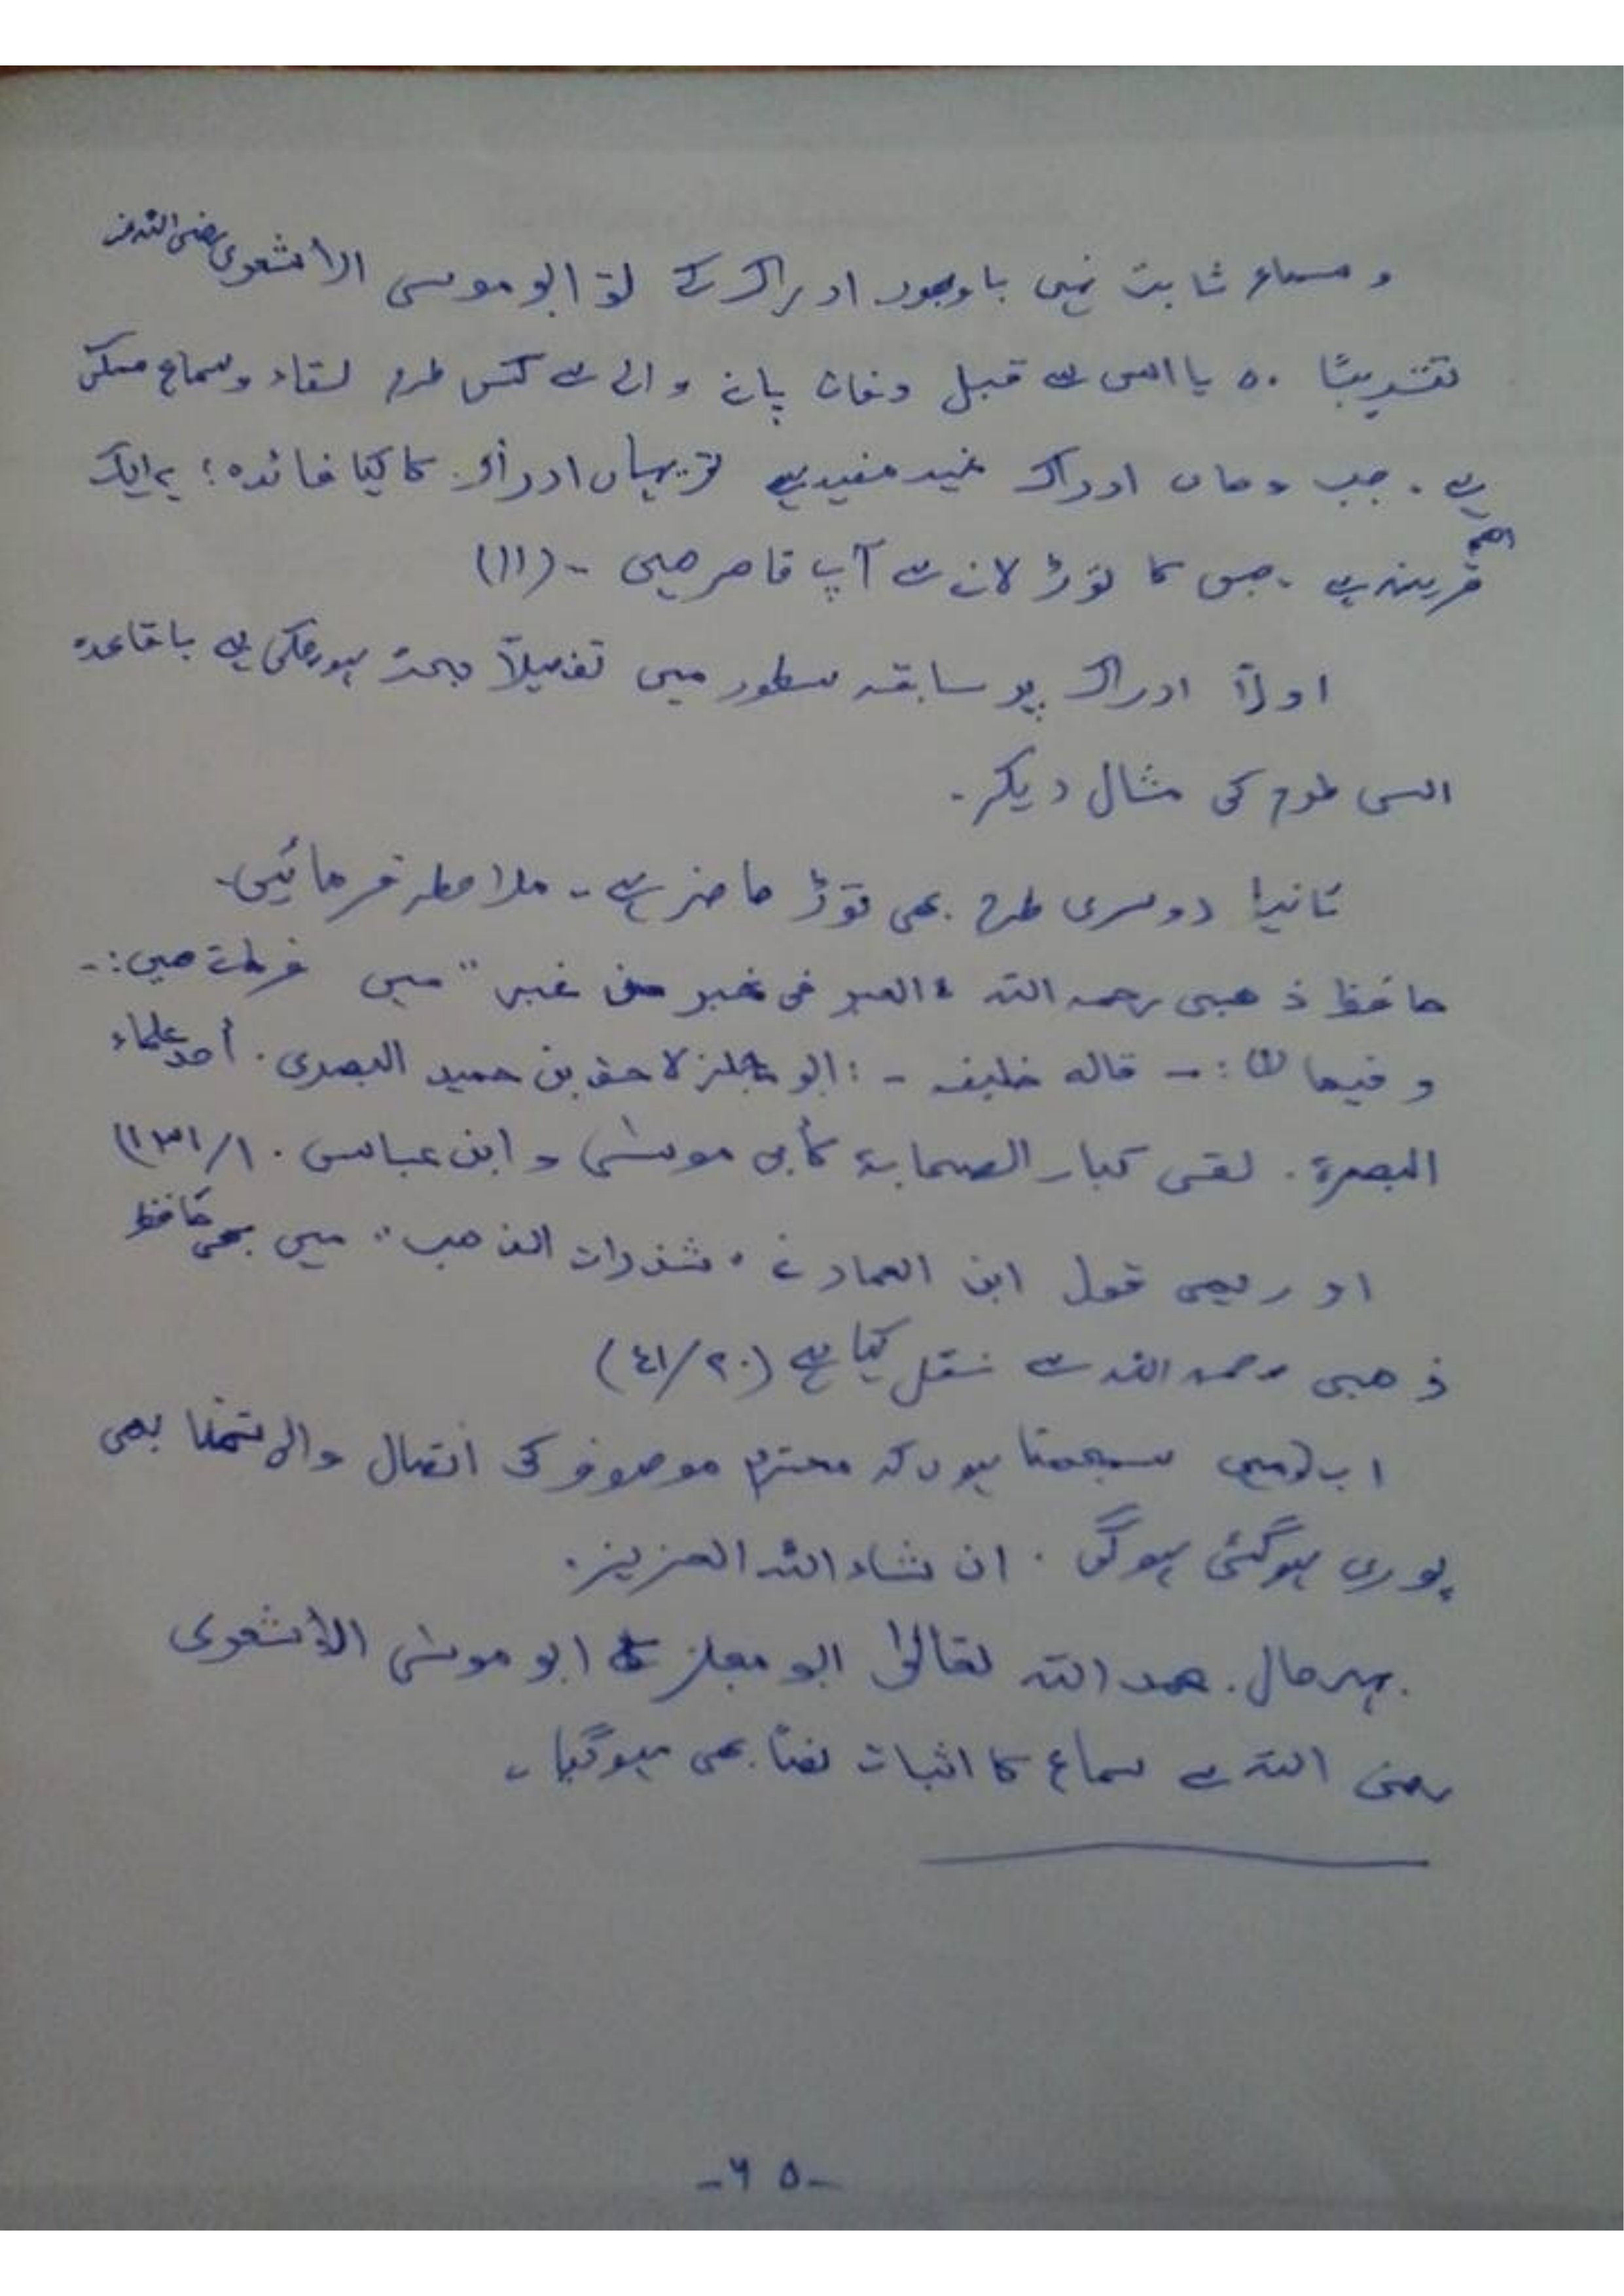 و سماع ثابت نہیں باوجود ادراک کے تو ابو موسی الأشعری رضی اللہ عنہ
تقریبًا ۵۰ یا اس سے قبل وفات پانے والے سے کس طرح لقاء و سماع ممکن
ہے ۔ جب وہاں ادراک غیر مفید ہے تو یہاں ادراک کا کیا فائدہ؛ یہ ایک
اہم قرینہ ہے ۔ جس کا توڑ لانے سے آپ قاصر ھیں ۔ (۱۱)
اولاً ادراک پر سابقہ سطور میں تفصیلاً بحث ہوچکی ہے باقاعدہ
اسی طرح کی مثال دیکر ۔
ثانیا دوسری طرح بھی توڑ حاضر ہے ۔ ملاحظہ فرمائیں ۔
حافظ ذھبی رحمہ اللہ "العبر فی خبر من غبر" میں فرماتے ھیں :-
و فیھا :- قالہ خلیفہ - : ابو مجلز لاحق بن حمید البصری . أحد علماء
البصرة . لقی کبار الصحابة کأبی موسیٰ و ابن عباس . ۱/۱۳۱)
اور یہی قول ابن العماد نے "شذرات الذھب" میں بھی حافظ
ذھبی رحمہ اللہ سے نقل کیا ہے (۲۰/٤۱)
اب میں سمجھتا ہوں کہ محترم موصوف کی اتصال والی تمنا بھی
پوری ہوگئی ہوگی . ان شاء اللہ العزیز .
بہرحال . بحمد اللہ تعالیٰ ابو مجلز کا ابو موسیٰ الأشعری
رضی اللہ سے سماع کا اثبات نصًا بھی ہوگیا ۔
- ۶۵ -